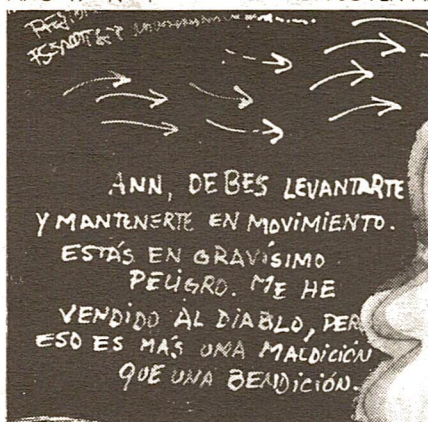 ANN, DEBES LEVANTARTE
Y MANTENERTE EN MOVIMIENTO.
ESTÁS EN GRAVÍSIMO
PELIGRO. ME HE
VENDIDO AL DIABLO, PER
ESO ES MÁS UNA MALDICIÓN
QUE UNA BENDICIÓN.